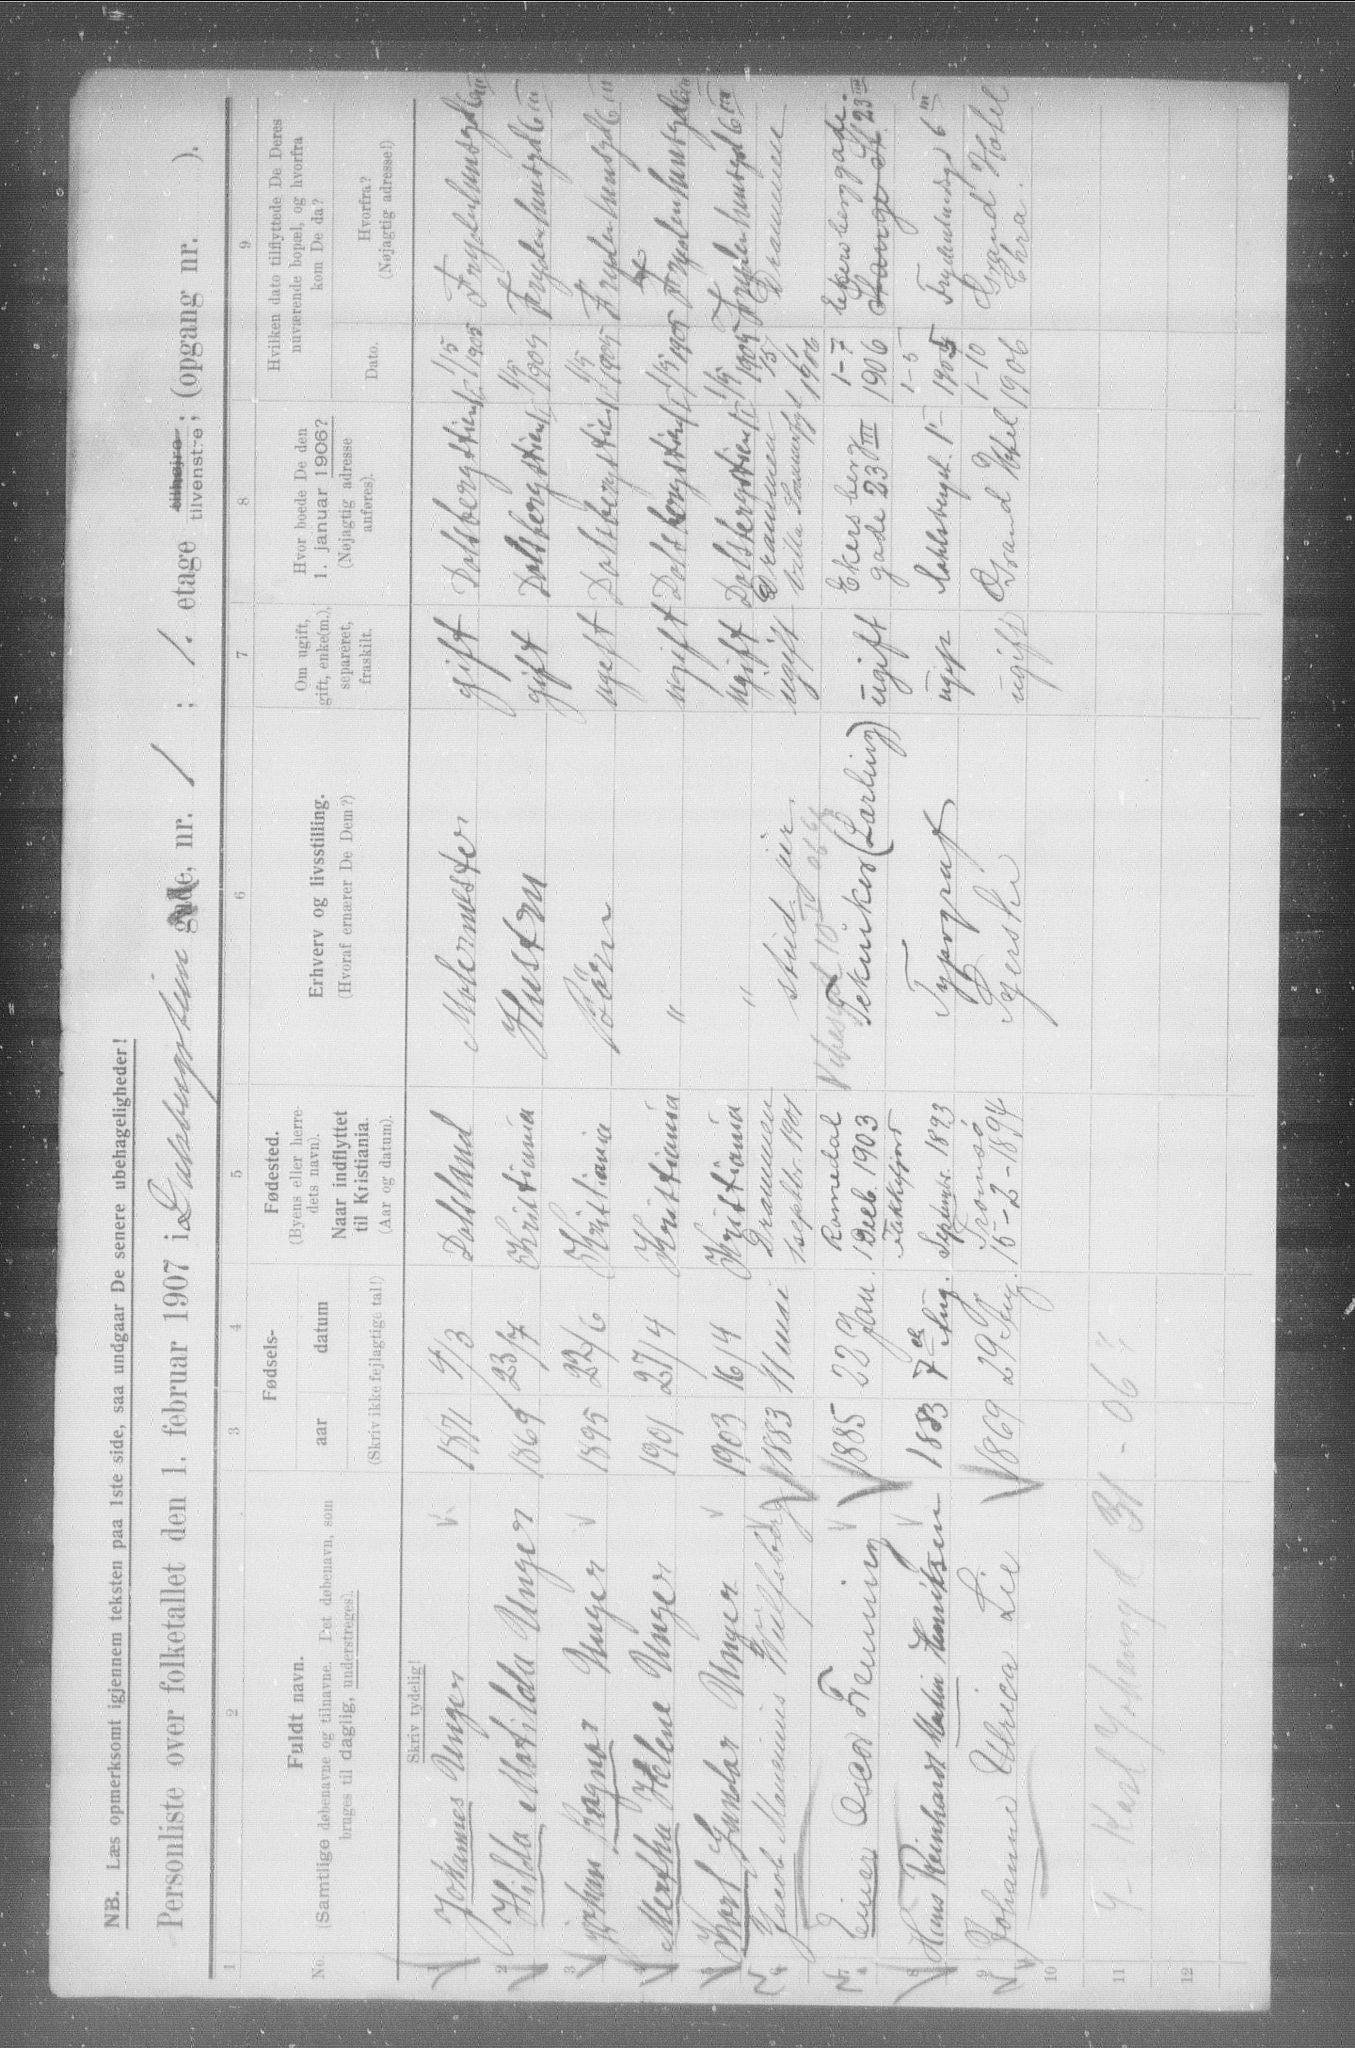 NB. Læs opmerksomt igjennem teksten paa 1ste side, saa undgaar De senere ubehageligheder!
Personliste over folketallet den 1. februar 1907 i Dalsbergstien gade, nr. 1 ; 1. etage tilhøjre tilvenstre; (opgang nr. ).
1 2 3 4 5 6 7 8 9
No.
Fuldt navn.
(Samtlige døbenavne og tilnavne. Det døbenavn, som
bruges til daglig, understreges).
Fødsels-
aar datum
(Skriv ikke fejlagtige tal!)
Fødested.
(Byens eller herre-
dets navn).
Naar indflyttet
til Kristiania.
(Aar og datum).
Erhverv og livsstilling.
(Hvoraf ernærer De Dem?)
Om ugift,
gift, enke(m.),
separeret,
fraskilt.
Hvor boede De den
1. januar 1906?
(Nøjagtig adresse
anføres).
Hvilken dato tilflyttede De Deres
nuværende bopæl, og hvorfra
kom De da?
Dato.
Hvorfra?
(Nøjagtig adresse!)
Skriv tydelig!
1 Johannes Unger 1871 4/3 Dalsland Malermester gift Dalsbergstien 1 1/5 1905
2 Hilda Matilda Unger 1869 23/7 Kristiania Hustru gift Dalsbergstien 1 1/5 1905
3 Johan Ragnar Unger 1895 22/6 Kristiania Børn ugift Dalsbergstien 1 1/5 1905
4 Martha Helene Unger 1901 27/4 Kristiania " ugift Dalsbergstien 1 1/5 1905
5 Karl Gunnar Unger 1903 16/4 Kristiania " ugift Dalsbergstien 1 1/5 1905
6 Jacob Mancinus Wulfsberg 1883 11 mai Drammen
1 septbr. 1901 stud. jur. ugift Drammen
villa 1906 Drammen
7 Einar Oscar Fleming 1885 22 Jan. Romedal
1 Decb. 1903 Tekniker (Lærling) ugift Ekersberg
gade 23 III 1-7
1906 Ekersberggade
23 III
8 Hans Reinhardt Martin Henriksen 1883 7de Aug. Takkefjord
Septembr. 1893 Typograf ugift 1-5
1905
9 Johanne Ulrica Lie 1869 29 Aug. Tromsø
15-2-1894 ugift Grand Hotel 1-10
1906 Grand Hotel
Chra.
10
11 9- Karl Johansgd 31 - 06
12